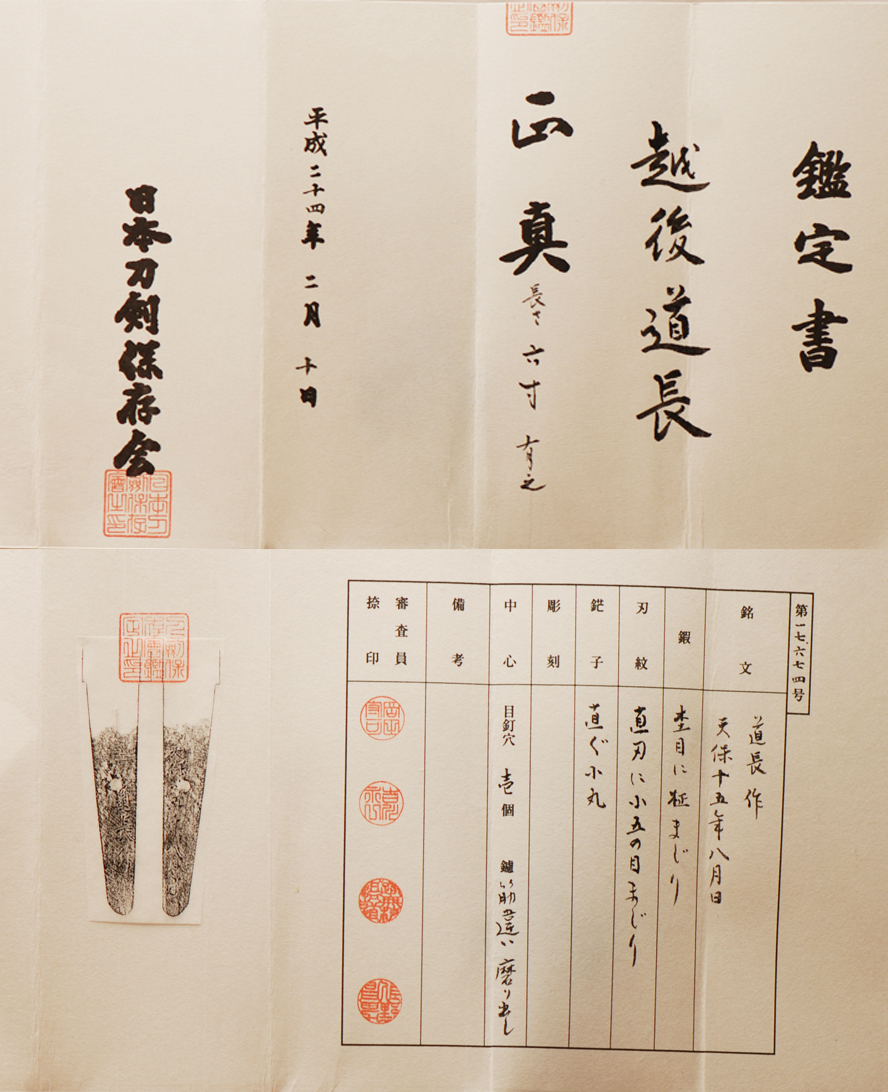 鑑定書
越後道長
正真
長さ 六寸 有之
平成二十四年 二月 十日
日本刀剣保存会
第一七、六七四号
銘文
道長作
天保十五年八月日
鍜
杢目に柾まじり
刃紋
直刃に小五の目まじり
鋩子
直ぐ小丸
彫刻
中心
目釘穴 壱個 鑢 筋違い 磨り出し
備考
審査員
捺印